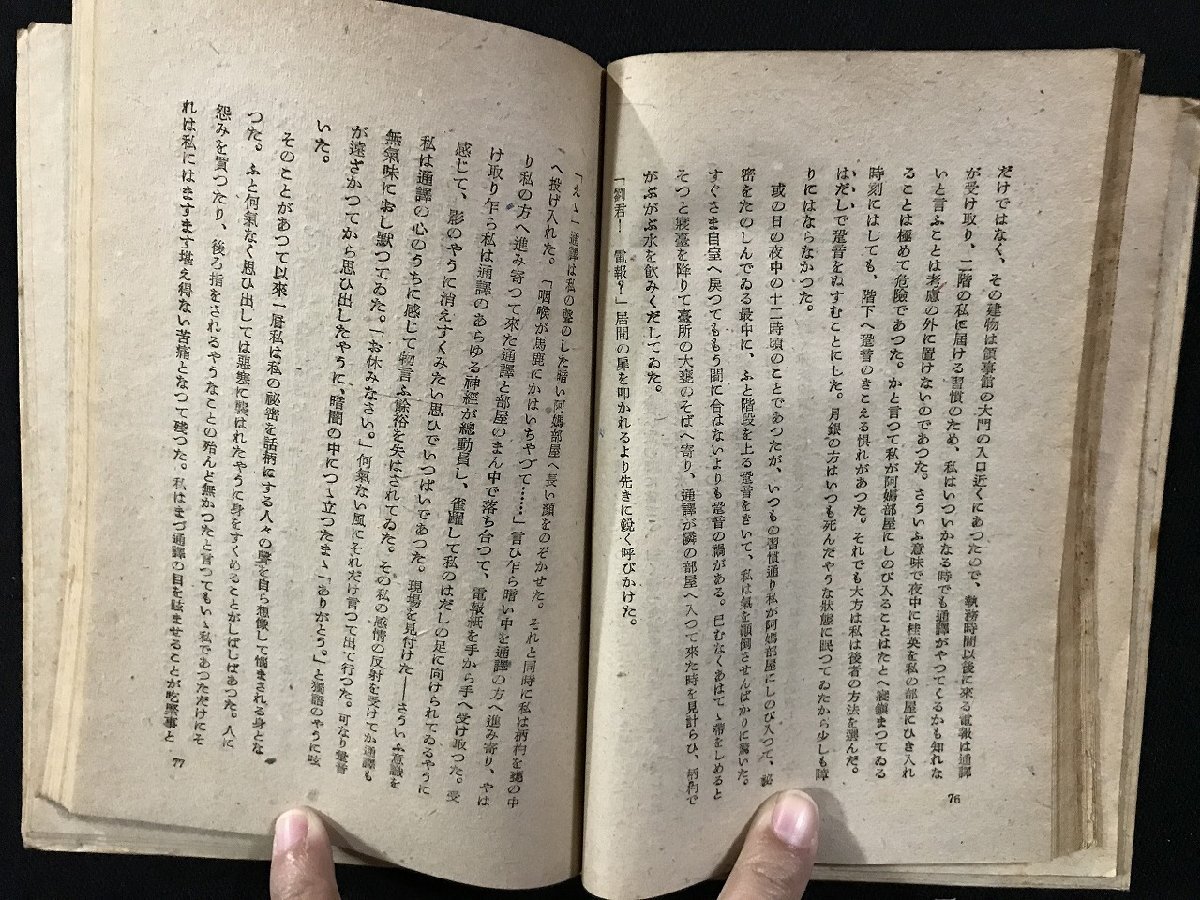 だけではなく、その建物は領事館の大門の入口近くにあつたので、執務時間以後に來る電報は通譯
が受け取り、二階の私に屆ける習慣のため、私はいついかなる時でも通譯がやつてくるかも知れな
いと言ふことは考慮の外に置けないのであつた。さういふ意味で夜中に桂英を私の部屋にひき入れ
ることは極めて危險であつた。かと言つて私が阿媽部屋にしのび入ることはたとへ寢鎭まつてゐる
時刻にしても、階下へ跫音のきこえる惧れがあつた。それでも大方は私は後者の方法を選んだ。
はだしで跫音をぬすむことにした。月銀の方はいつも死んだやうな狀態に眠つてゐたから少しも障
りにはならなかつた。
或の日の夜中の十二時頃のことであつたが、いつもの習慣通り私が阿媽部屋にしのび入つて、祕
密をたのしんでゐる最中に、ふと階段を上る跫音をきいて、私は氣を顚倒させんばかりに驚いた。
すぐさま自室へ戾つてももう間に合はないよりも跫音の禍がある。已むなくあはてゝ帶をしめると
そつと寢臺を降りて臺所の大甕のそばへ寄り、通譯が隣の部屋へ入つて來た時を見計らひ、柄杓で
がぶがぶ水を飮みくだしてゐた。
「劉君!電報?」居間の扉を叩かれるより先きに鋭く呼びかけた。
76
「えゝ」通譯は私の聲のした暗い阿媽部屋へ長い顏をのぞかせた。それと同時に私は柄杓を甕の中
へ投げ入れた。「咽喉が馬鹿にかはいちやつて……」言ひ乍ら暗い中を通譯の方へ進み寄り、やは
り私の方へ進み寄つて來た通譯と部屋のまん中で落ち合つて、電報紙を手から手へ受け取つた。受
け取り乍ら私は通譯のあらゆる神經が總動員し、雀躍して私のはだしの足に向けられてゐるやうに
感じて、影のやうに消えすくみたい思ひでいつぱいであつた。現場を見付けた——さういふ意識を
私は通譯の心のうちに感じて物言ふ餘裕を失はされてゐた。その私の感情の反射を受けてか通譯も
無氣味におし默つてゐた。「お休みなさい。」何氣ない風にそれだけ言つて出て行つた。可なり跫音
が遠ざかつてから思ひ出したやうに、暗闇の中につゝ立つたまゝ「ありがとう。」と獨語のやうに呟
いた。
そのことがあつて以來一層私は私の祕密を話柄にする人々の聲を自ら想像して惱まされる身とな
つた。ふと何氣なく思ひ出しては惡寒に襲はれたやうに身をすくめることがしばしばあつた。人に
怨みを買つたり、後ろ指をされるやうなことの殆んど無かつたと言つてもいゝ私であつただけにそ
れは私にはますます堪え得ない苦痛となつて殘つた。私はまづ通譯の目を眩ませることが吃緊事と
77